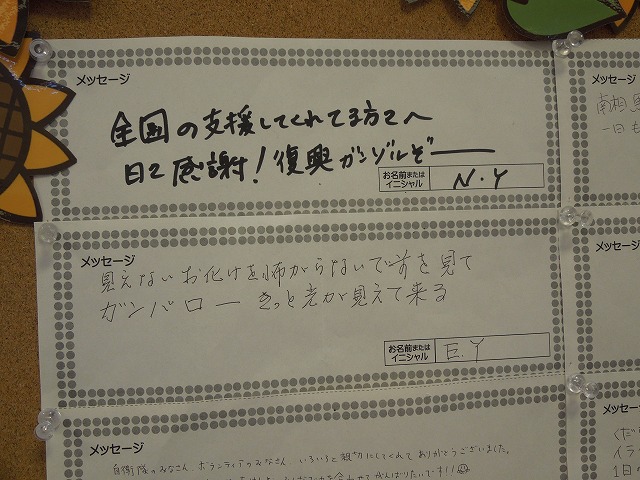 メッセージ
全国の支援してくれてる方々へ
日々感謝!復興ガンバルぞー
お名前または
イニシャル
N・Y
メッセージ
見えないお化けを怖がらないで前を見て
ガンバロー きっと光が見えて来る
お名前または
イニシャル
E.Y
メッセージ
自衛隊のみなさん、ボランティアのみなさん、いろいろと親切にしてくれてありがとうございました。
がんばりたいです!!
メッセージ
南相馬
一日も
メッセージ
メッセージ
くださ
イラ
1日